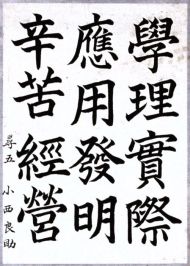 學理實際
應用發明
辛苦經營
尋五 小西良助